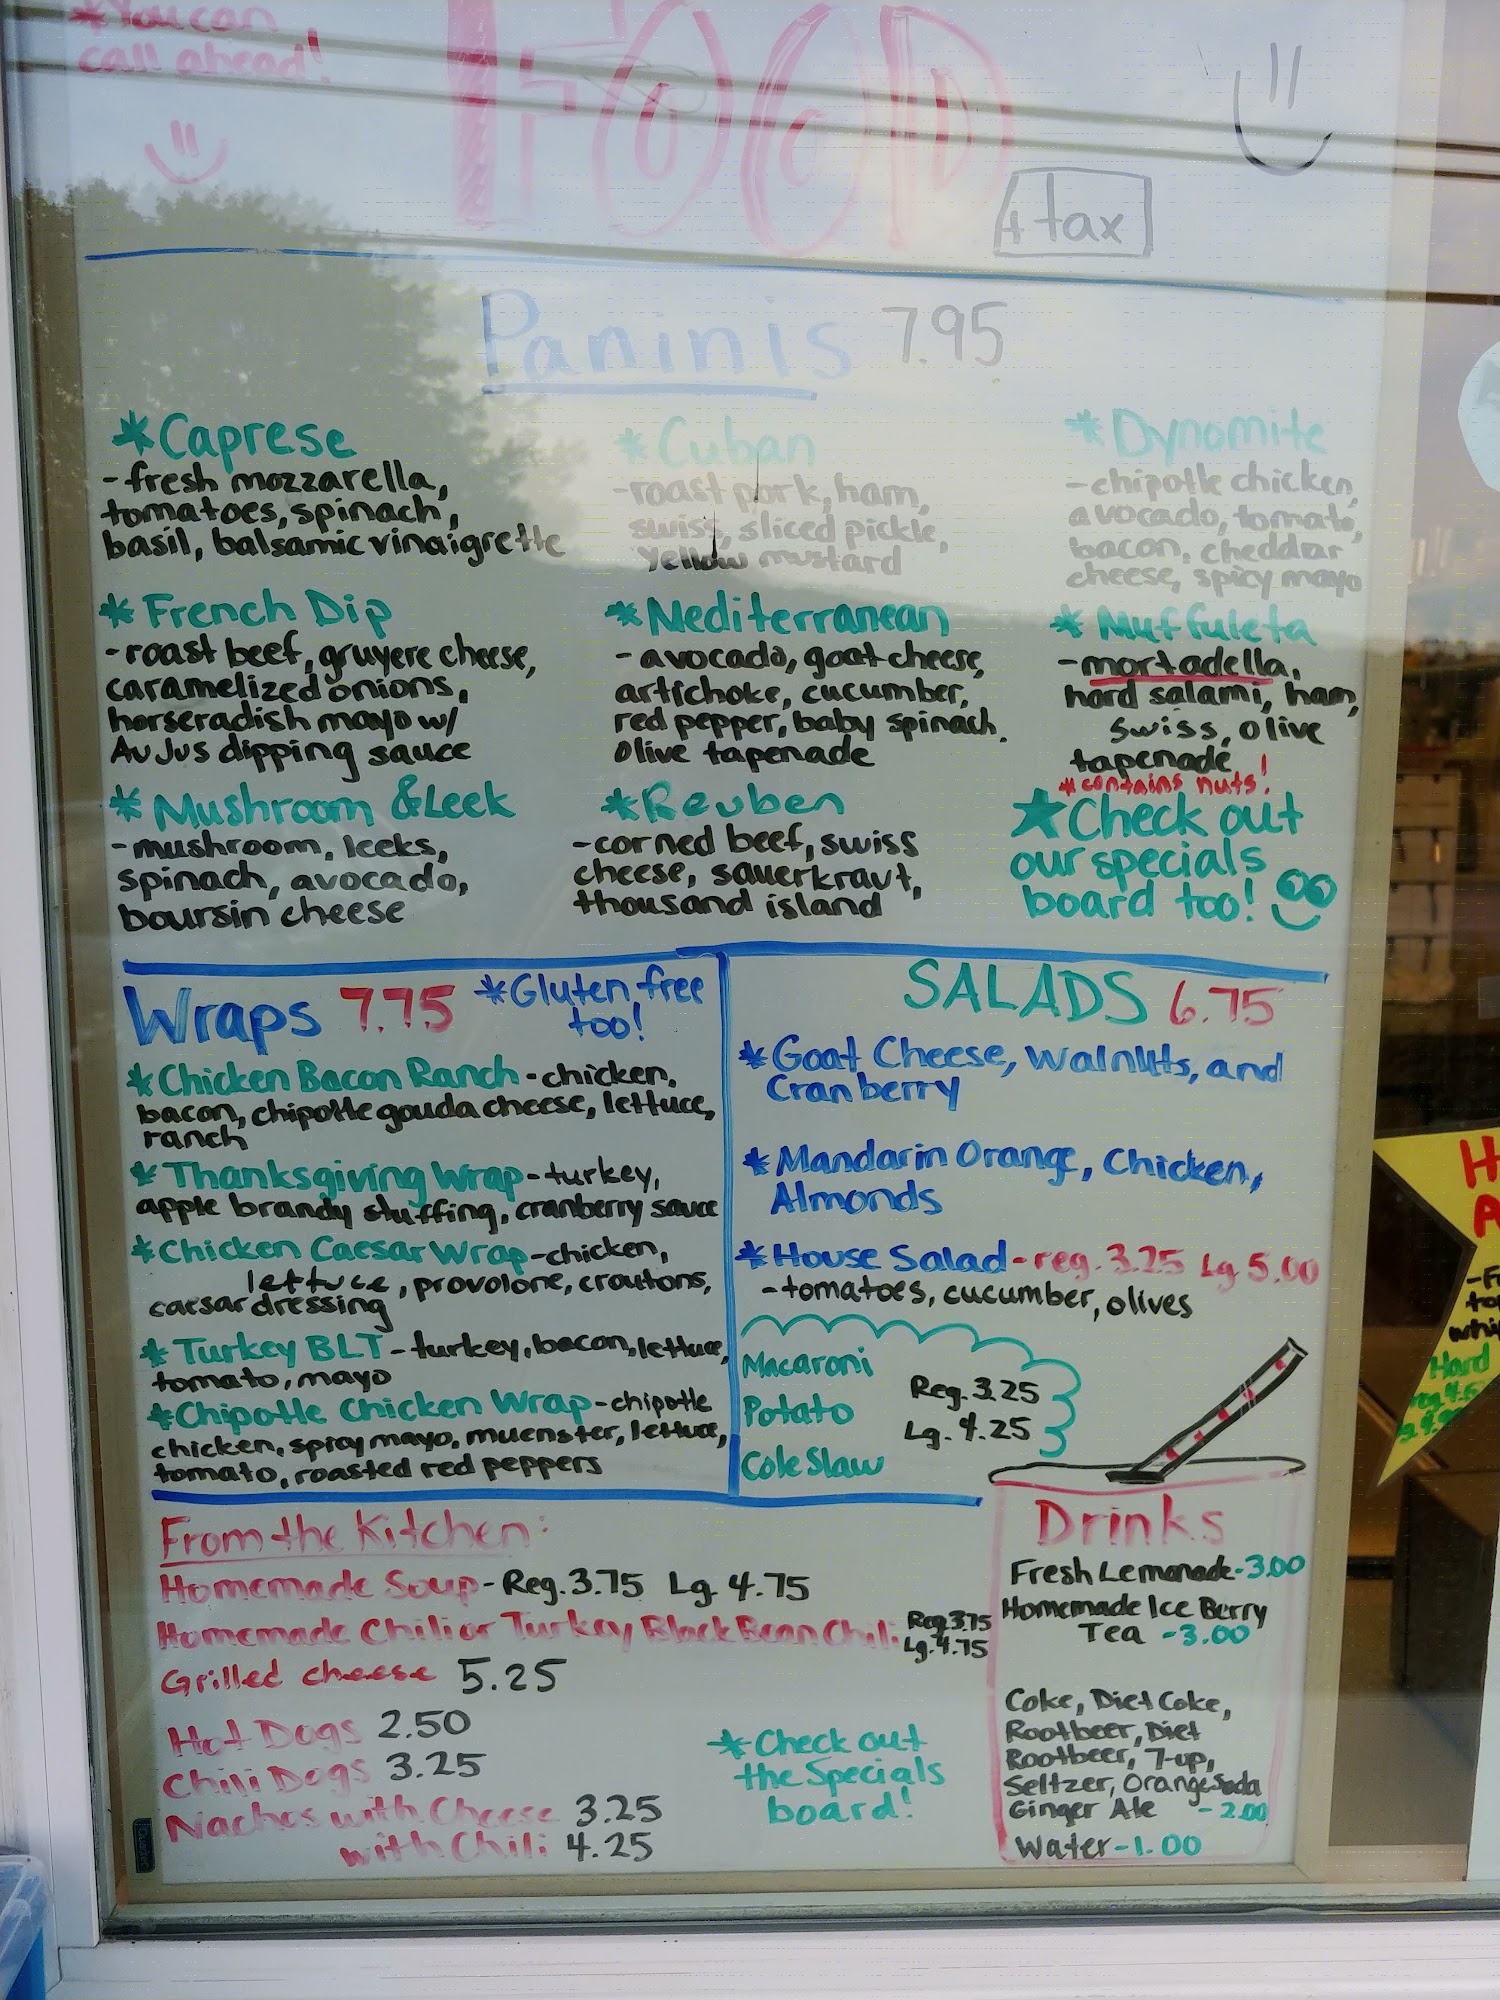 *You can
call ahead!
FOOD
+ tax
Paninis 7.95
*Caprese
-fresh mozzarella,
tomatoes, spinach,
basil, balsamic vinaigrette
*Cuban
-roast pork, ham,
swiss, sliced pickle,
yellow mustard
*Dynomite
-chipotle chicken,
avocado, tomato,
bacon, cheddar
cheese, spicy mayo
*French Dip
-roast beef, gruyere cheese,
caramelized onions,
horseradish mayo w/
Au Jus dipping sauce
*Mediterranean
-avocado, goat cheese,
artichoke, cucumber,
red pepper, baby spinach,
olive tapenade
*Muffuleta
-mortadella,
hard salami, ham,
swiss, olive
tapenade
*contains nuts!
*Mushroom & Leek
-mushroom, leeks,
spinach, avocado,
boursin cheese
*Reuben
-corned beef, swiss
cheese, sauerkraut,
thousand island
★Check out
our specials
board too!
Wraps 7.75 *Gluten free
too!
*Chicken Bacon Ranch-chicken,
bacon, chipotle gouda cheese, lettuce,
ranch
*Thanksgiving Wrap-turkey,
apple brandy stuffing, cranberry sauce
*Chicken Caesar Wrap-chicken,
lettuce, provolone, croutons,
caesar dressing
*Turkey BLT-turkey, bacon, lettuce,
tomato, mayo
*Chipotle Chicken Wrap-chipotle
chicken, spicy mayo, muenster, lettuce,
tomato, roasted red peppers
SALADS 6.75
*Goat Cheese, Walnuts, and
Cranberry
*Mandarin Orange, Chicken,
Almonds
*House Salad-reg. 3.25 Lg 5.00
-tomatoes, cucumber, olives
Macaroni
Potato
Cole Slaw
Reg. 3.25
Lg. 4.25
From the Kitchen:
Homemade Soup-Reg. 3.75 Lg. 4.75
Homemade Chili or Turkey Black Bean Chili Reg. 3.75
Lg. 4.75
Grilled cheese 5.25
Hot Dogs 2.50
Chili Dogs 3.25
Nachos with Cheese 3.25
with Chili 4.25
*Check out
the Specials
board!
Drinks
Fresh Lemonade-3.00
Homemade Ice Berry
Tea -3.00
Coke, Diet Coke,
Rootbeer, Diet
Rootbeer, 7-up,
Seltzer, Orange Soda
Ginger Ale -2.00
Water-1.00
Hard